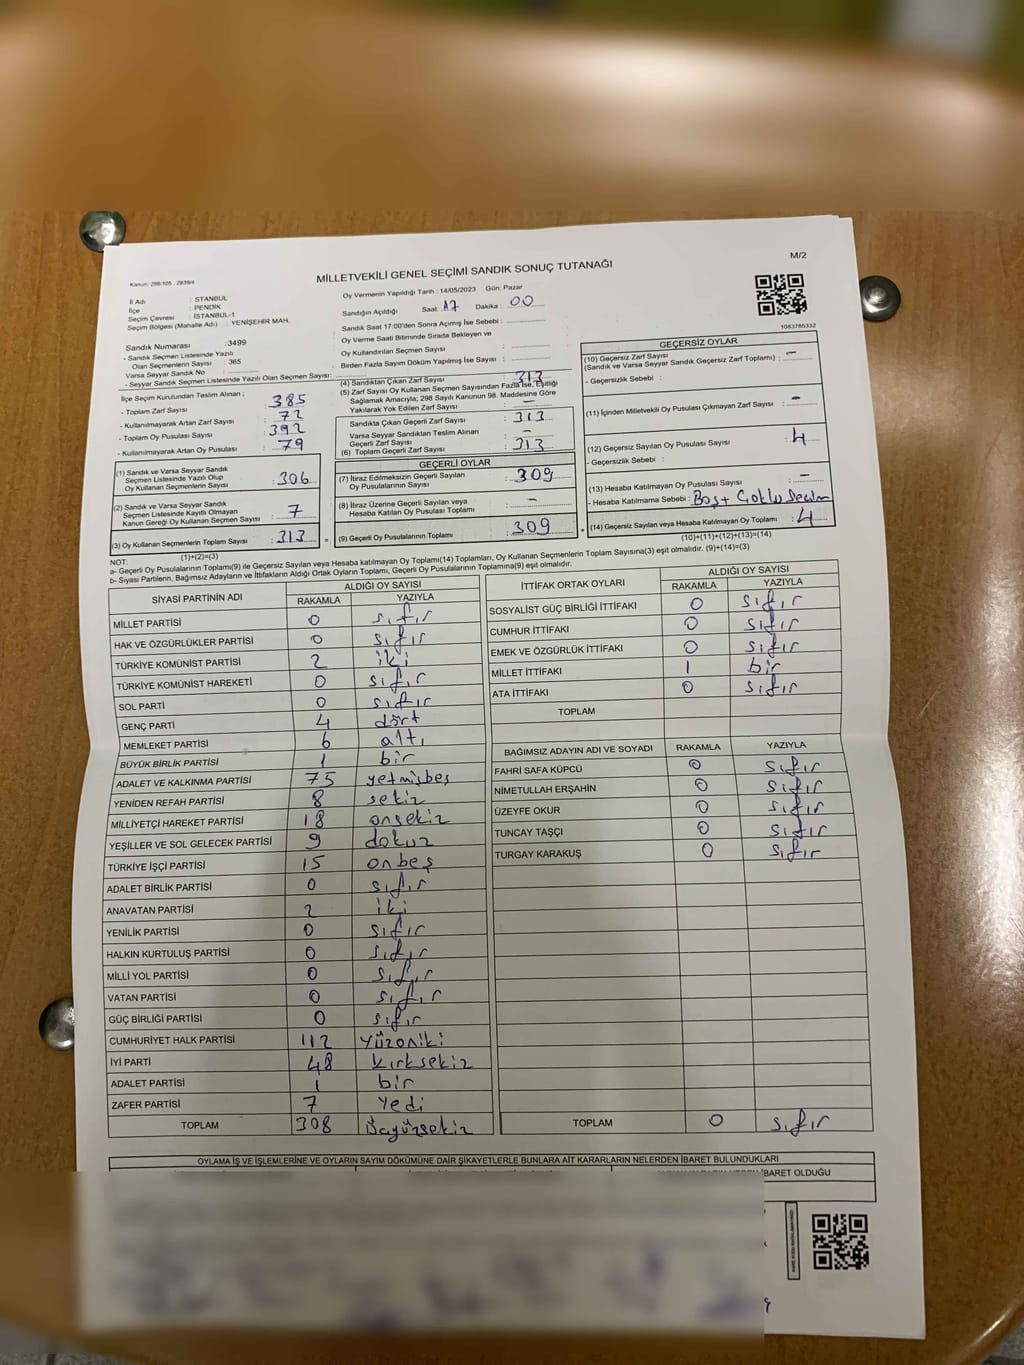 M/2
MİLLETVEKİLİ GENEL SEÇİMİ SANDIK SONUÇ TUTANAĞI
Kanun: 298/105 , 2839/4
İl Adı : STANBUL
İlçe : PENDİK
Seçim Çevresi : İSTANBUL-1
Seçim Bölgesi (Mahalle Adı) : YENİŞEHİR MAH.
Sandık Numarası :3499
- Sandık Seçmen Listesinde Yazılı
Olan Seçmenlerin Sayısı : 365
Varsa Seyyar Sandık No :
- Seyyar Sandık Seçmen Listesinde Yazılı Olan Seçmen Sayısı:
İlçe Seçim Kurulundan Teslim Alınan ;
- Toplam Zarf Sayısı : 385
- Kullanılmayarak Artan Zarf Sayısı : 72
- Toplam Oy Pusulası Sayısı : 392
- Kullanılmayarak Artan Oy Pusulası : 79
(1) Sandık ve Varsa Seyyar Sandık
Seçmen Listesinde Yazılı Olup
Oy Kullanan Seçmenlerin Sayısı : 306
(2) Sandık ve Varsa Seyyar Sandık
Seçmen Listesinde Kayıtlı Olmayan
Kanun Gereği Oy Kullanan Seçmen Sayısı : 7
(3) Oy Kullanan Seçmenlerin Toplam Sayısı : 313
(1)+(2)=(3)
Oy Vermenin Yapıldığı Tarih : 14/05/2023 Gün: Pazar
Sandığın Açıldığı Saat: 17 Dakika : 00
Sandık Saat 17:00'den Sonra Açılmış İse Sebebi :
Oy Verme Saati Bitiminde Sırada Bekleyen ve
Oy Kullandırılan Seçmen Sayısı :
Birden Fazla Sayım Döküm Yapılmış İse Sayısı :
(4) Sandıktan Çıkan Zarf Sayısı : 313
(5) Zarf Sayısı Oy Kullanan Seçmen Sayısından Fazla İse, Eşitliği
Sağlamak Amacıyla; 298 Sayılı Kanunun 98. Maddesine Göre
Yakılarak Yok Edilen Zarf Sayısı : -
Sandıkta Çıkan Geçerli Zarf Sayısı : 313
Varsa Seyyar Sandıktan Teslim Alınan
Geçerli Zarf Sayısı : -
(6) Toplam Geçerli Zarf Sayısı : 313
GEÇERLİ OYLAR
(7) İtiraz Edilmeksizin Geçerli Sayılan
Oy Pusulalarının Sayısı : 309
(8) İtiraz Üzerine Geçerli Sayılan veya
Hesaba Katılan Oy Pusulası Toplamı : -
(9) Geçerli Oy Pusulalarının Toplamı : 309
1083785332
GEÇERSİZ OYLAR
(10) Geçersiz Zarf Sayısı
(Sandık ve Varsa Seyyar Sandık Geçersiz Zarf Toplamı) : -
- Geçersizlik Sebebi :
(11) İçinden Milletvekili Oy Pusulası Çıkmayan Zarf Sayısı : -
(12) Geçersiz Sayılan Oy Pusulası Sayısı : 4
- Geçersizlik Sebebi :
(13) Hesaba Katılmayan Oy Pusulası Sayısı : -
- Hesaba Katılmama Sebebi : Boş + Çoklu Seçim
(14) Geçersiz Sayılan veya Hesaba Katılmayan Oy Toplamı : 4
(10)+(11)+(12)+(13)=(14)
NOT:
a- Geçerli Oy Pusulalarının Toplamı(9) ile Geçersiz Sayılan veya Hesaba katılmayan Oy Toplamı(14) Toplamları, Oy Kullanan Seçmenlerin Toplam Sayısına(3) eşit olmalıdır. (9)+(14)=(3)
b- Siyasi Partilerin, Bağımsız Adayların ve İttifakların Aldığı Ortak Oyların Toplamı, Geçerli Oy Pusulalarının Toplamına(9) eşit olmalıdır.
SİYASİ PARTİNİN ADI ALDIĞI OY SAYISI
RAKAMLA YAZIYLA
MİLLET PARTİSİ 0 sıfır
HAK VE ÖZGÜRLÜKLER PARTİSİ 0 sıfır
TÜRKİYE KOMÜNİST PARTİSİ 2 iki
TÜRKİYE KOMÜNİST HAREKETİ 0 sıfır
SOL PARTİ 0 sıfır
GENÇ PARTİ 4 dört
MEMLEKET PARTİSİ 6 altı
BÜYÜK BİRLİK PARTİSİ 1 bir
ADALET VE KALKINMA PARTİSİ 75 yetmişbeş
YENİDEN REFAH PARTİSİ 8 sekiz
MİLLİYETÇİ HAREKET PARTİSİ 18 onsekiz
YEŞİLLER VE SOL GELECEK PARTİSİ 9 dokuz
TÜRKİYE İŞÇİ PARTİSİ 15 onbeş
ADALET BİRLİK PARTİSİ 0 sıfır
ANAVATAN PARTİSİ 2 iki
YENİLİK PARTİSİ 0 sıfır
HALKIN KURTULUŞ PARTİSİ 0 sıfır
MİLLİ YOL PARTİSİ 0 sıfır
VATAN PARTİSİ 0 sıfır
GÜÇ BİRLİĞİ PARTİSİ 0 sıfır
CUMHURİYET HALK PARTİSİ 112 yüzoniki
İYİ PARTİ 48 kırksekiz
ADALET PARTİSİ 1 bir
ZAFER PARTİSİ 7 yedi
TOPLAM 308 üçyüzsekiz
İTTİFAK ORTAK OYLARI ALDIĞI OY SAYISI
RAKAMLA YAZIYLA
SOSYALİST GÜÇ BİRLİĞİ İTTİFAKI 0 sıfır
CUMHUR İTTİFAKI 0 sıfır
EMEK VE ÖZGÜRLÜK İTTİFAKI 0 sıfır
MİLLET İTTİFAKI 1 bir
ATA İTTİFAKI 0 sıfır
TOPLAM
BAĞIMSIZ ADAYIN ADI VE SOYADI RAKAMLA YAZIYLA
FAHRİ SAFA KÜPCÜ 0 sıfır
NİMETULLAH ERŞAHİN 0 sıfır
ÜZEYFE OKUR 0 sıfır
TUNCAY TAŞÇI 0 sıfır
TURGAY KARAKUŞ 0 sıfır
TOPLAM 0 sıfır
OYLAMA İŞ VE İŞLEMLERİNE VE OYLARIN SAYIM DÖKÜMÜNE DAİR ŞİKAYETLERLE BUNLARA AİT KARARLARIN NELERDEN İBARET BULUNDUKLARI
İBARET OLDUĞU